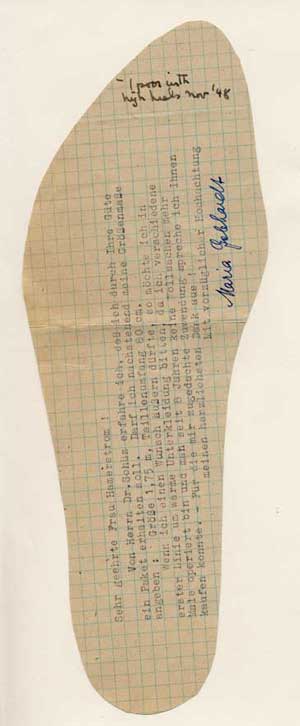 1 pair with
high heels Nov '48
Sehr geehrte Frau Hamerstrom !
Von Herrn Dr. Schüz erfahre ich, dass ich durch Ihre Güte
ein Paket erhalten soll. Darf ich nachstehend meine Größenmaße
angeben : Größe 1,75 m, Taillenumfang 80 cm.
Wenn ich einen Wunsch äußern dürfte, so möchte ich in
erster Linie um warme Unterkleidung bitten, da ich verschiedene
Male operiert bin und man seit 8 Jahren keine Wollsachen mehr
kaufen konnte. - Für die mir zugedachte Zuwendung spreche ich Ihnen
meinen herzlichsten Dank aus !
Mit vorzüglicher Hochachtung
Maria Gebhardt